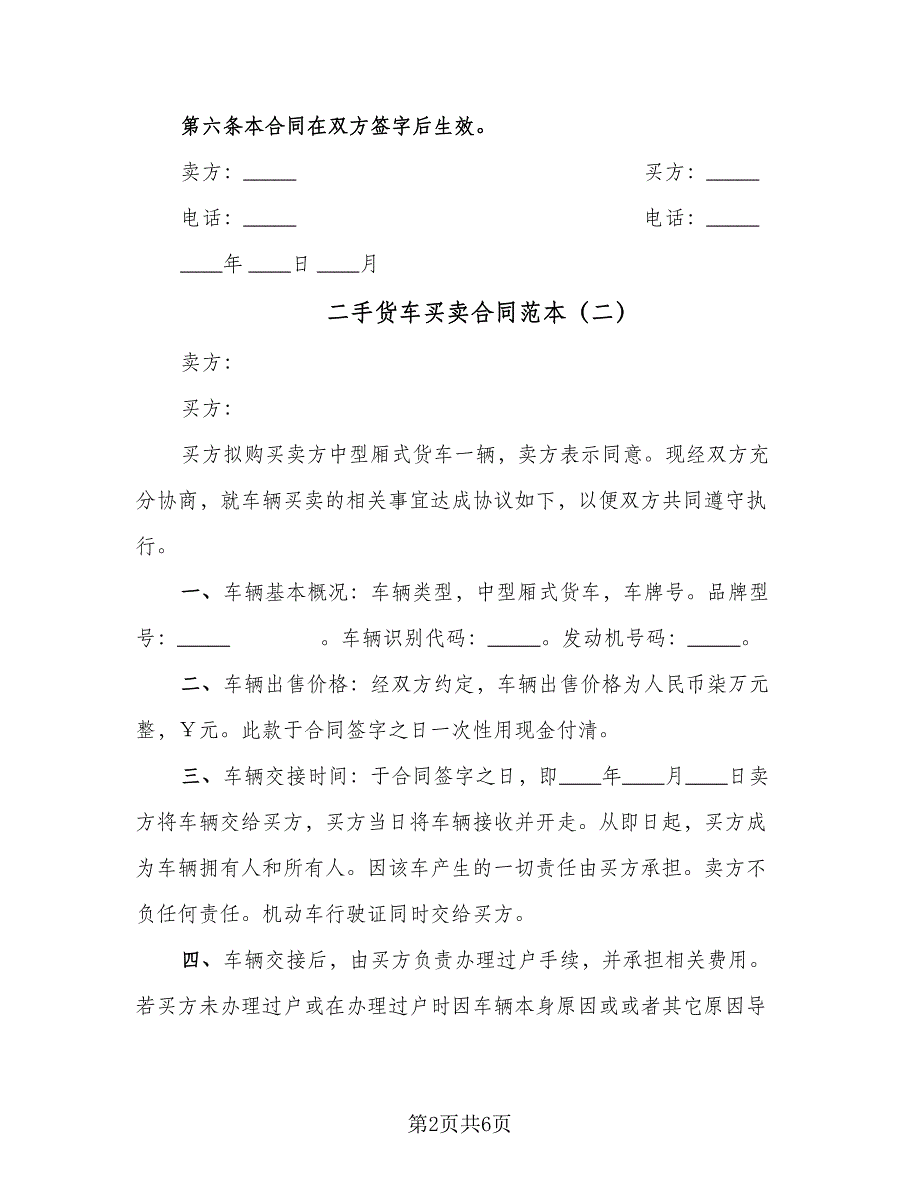 第六条本合同在双方签字后生效。
卖方：_____ 买方：_____
电话：_____ 电话：_____
____年 ____日 ____月
二手货车买卖合同范本（二）
卖方：
买方：
买方拟购买卖方中型厢式货车一辆，卖方表示同意。现经双方充
分协商，就车辆买卖的相关事宜达成协议如下，以便双方共同遵守执
行。
一、车辆基本概况：车辆类型，中型厢式货车，车牌号。品牌型
号：_____ 。车辆识别代码：_____。发动机号码：_____。
二、车辆出售价格：经双方约定，车辆出售价格为人民币柒万元
整，￥元。此款于合同签字之日一次性用现金付清。
三、车辆交接时间：于合同签字之日，即____年____月____日卖
方将车辆交给买方，买方当日将车辆接收并开走。从即日起，买方成
为车辆拥有人和所有人。因该车产生的一切责任由买方承担。卖方不
负任何责任。机动车行驶证同时交给买方。
四、车辆交接后，由买方负责办理过户手续，并承担相关费用。
若买方未办理过户或在办理过户时因车辆本身原因或或者其它原因导
第2页共6页